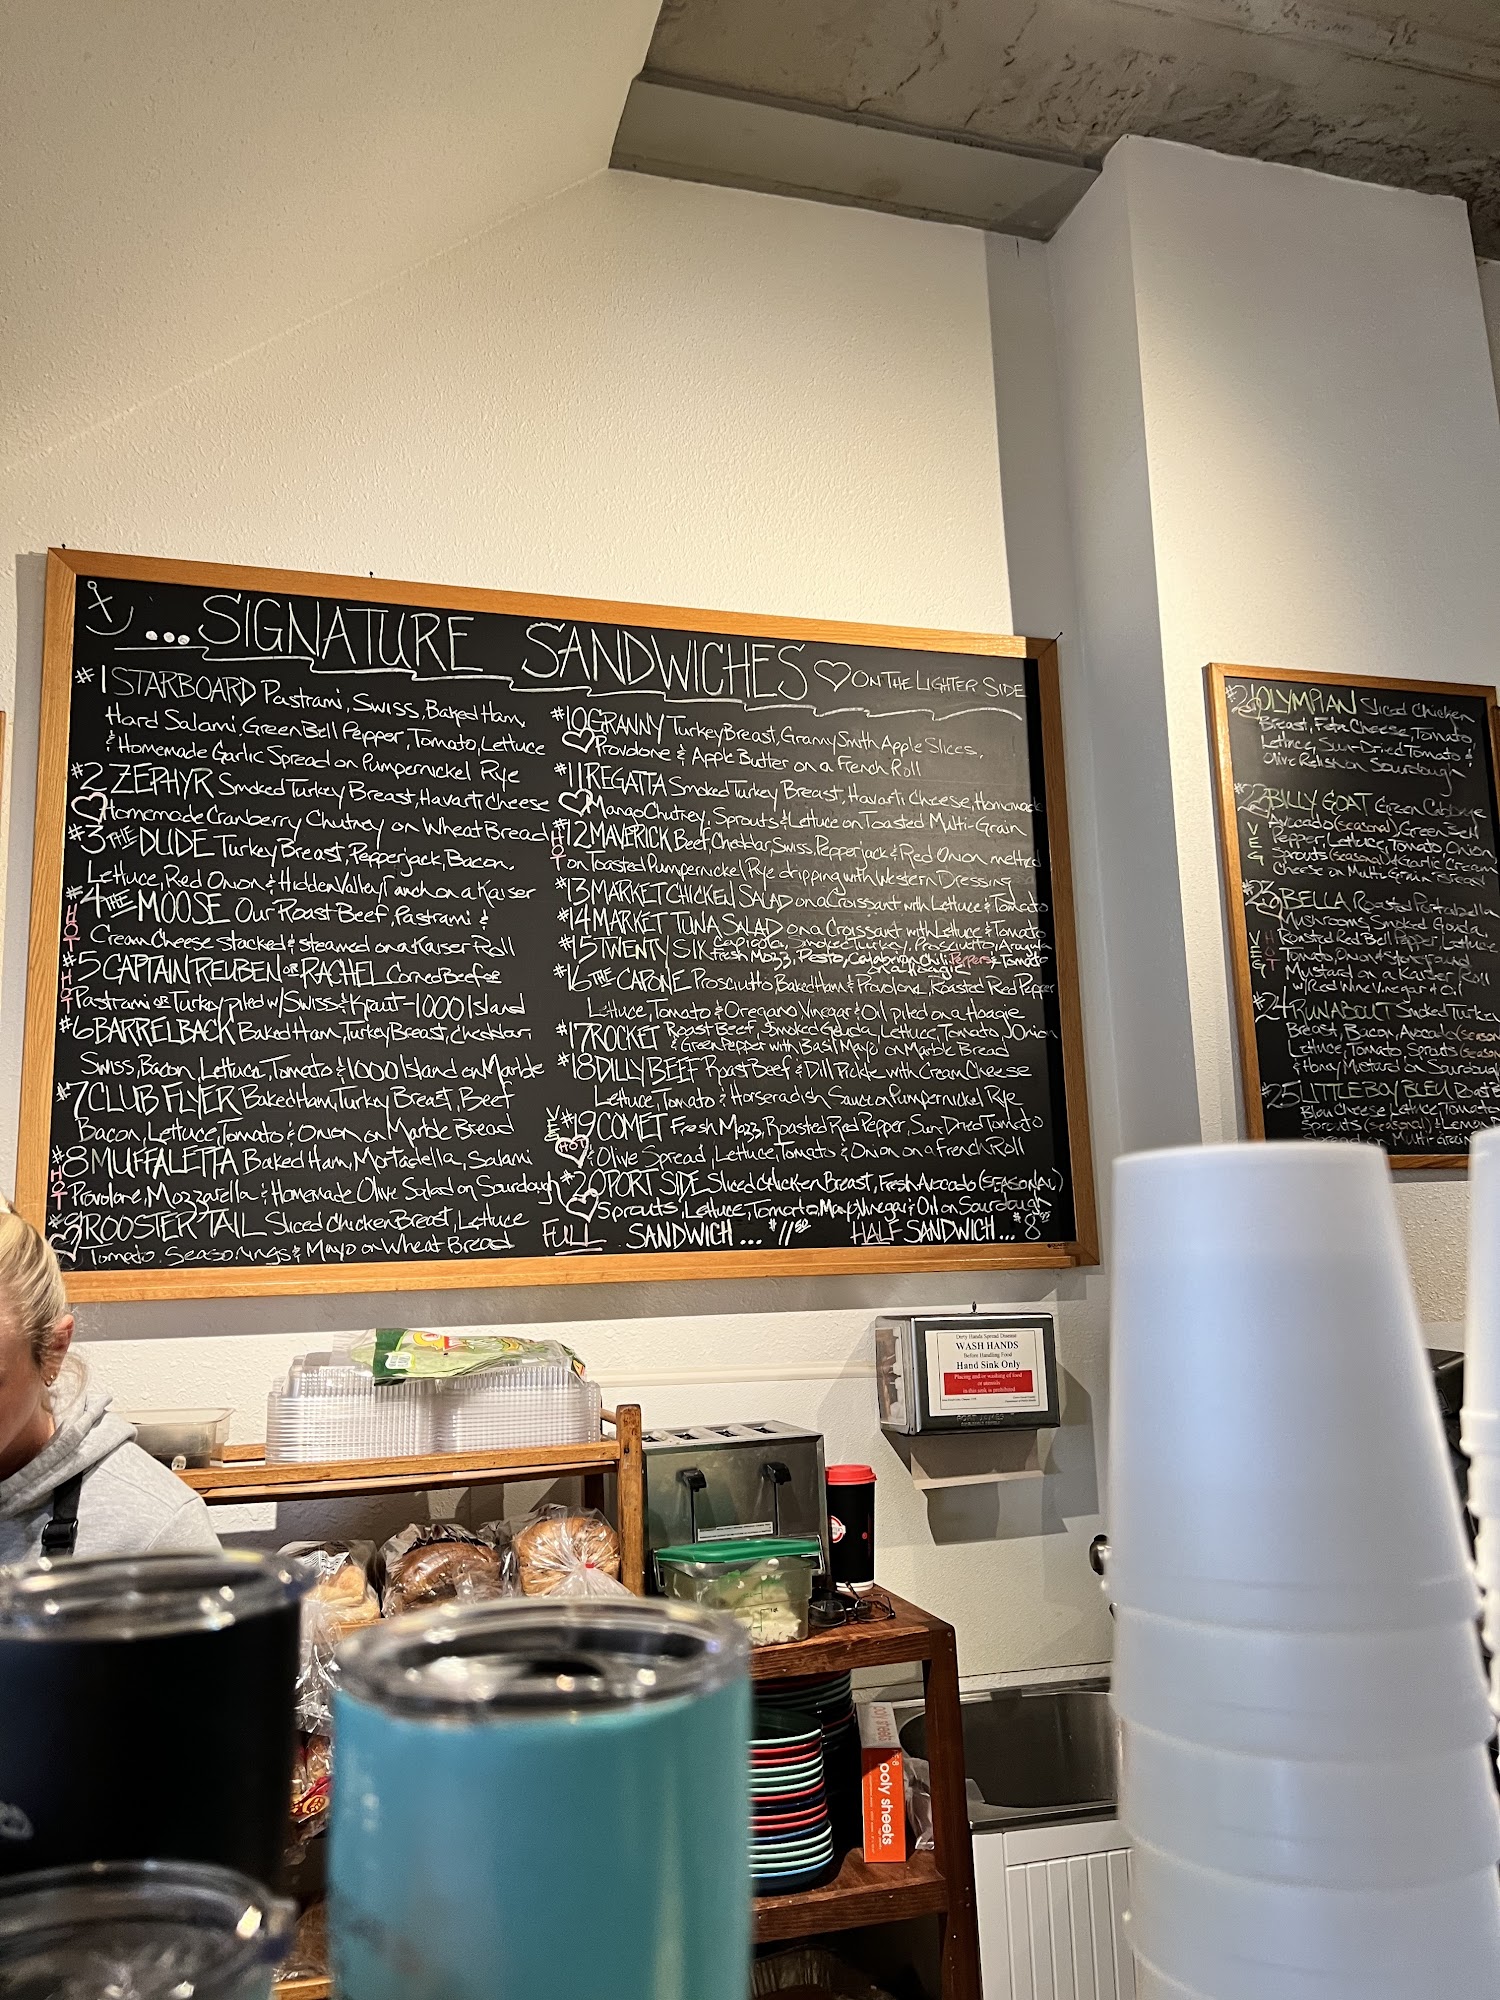 ... SIGNATURE SANDWICHES ♡ ON THE LIGHTER SIDE
#1 STARBOARD Pastrami, Swiss, Baked Ham,
Hard Salami, Green Bell Pepper, Tomato, Lettuce
& Homemade Garlic Spread on Pumpernickel Rye
#2 ZEPHYR Smoked Turkey Breast, Havarti Cheese
♡ Homemade Cranberry Chutney on Wheat Bread
#3 THE DUDE Turkey Breast, Pepperjack, Bacon,
Lettuce, Red Onion & Hidden Valley Ranch on a Kaiser
#4 THE MOOSE Our Roast Beef, Pastrami &
HOT Cream Cheese stacked & steamed on a Kaiser Roll
#5 CAPTAIN REUBEN or RACHEL Corned Beef or
HOT Pastrami or Turkey piled w/ Swiss & Kraut - 1000 Island
#6 BARRELBACK Baked Ham, Turkey Breast, Cheddar,
Swiss, Bacon, Lettuce, Tomato & 1000 Island on Marble
#7 CLUB FLYER Baked Ham, Turkey Breast, Beef
Bacon, Lettuce, Tomato & Onion on Marble Bread
#8 MUFFALETTA Baked Ham, Mortadella, Salami
HOT Provolone, Mozzarella & Homemade Olive Salad on Sourdough
#9 ROOSTER TAIL Sliced Chicken Breast, Lettuce
♡ Tomato, Seasonings & Mayo on Wheat Bread
#10 GRANNY Turkey Breast, Granny Smith Apple Slices,
♡ Provolone & Apple Butter on a French Roll
#11 REGATTA Smoked Turkey Breast, Havarti Cheese, Homemade
♡ Mango Chutney, Sprouts & Lettuce on Toasted Multi-Grain
#12 MAVERICK Beef, Cheddar, Swiss, Pepperjack & Red Onion melted
HOT on Toasted Pumpernickel Rye dripping with Western Dressing
#13 MARKET CHICKEN SALAD on a Croissant with Lettuce & Tomato
#14 MARKET TUNA SALAD on a Croissant with Lettuce & Tomato
#15 TWENTY SIX Capicola, Smoked Turkey, Prosciutto, Arugula
Fresh Mozz, Pesto, Calabrian Chili Peppers & Tomato
on a Hoagie
#16 THE CAPONE Prosciutto, Baked Ham & Provolone, Roasted Red Pepper
Lettuce, Tomato & Oregano Vinegar & Oil piled on a Hoagie
#17 ROCKET Roast Beef, Smoked Gouda, Lettuce, Tomato, Onion
& Green Pepper with Basil Mayo on Marble Bread
#18 DILLY BEEF Roast Beef & Dill Pickle with Cream Cheese
Lettuce, Tomato & Horseradish Sauce on Pumpernickel Rye
VEG #19 COMET Fresh Mozz, Roasted Red Pepper, Sun-Dried Tomato
HOT & Olive Spread, Lettuce, Tomato & Onion on a French Roll
#20 PORT SIDE Sliced Chicken Breast, Fresh Avocado (SEASONAL)
♡ Sprouts, Lettuce, Tomato, Mayo, Vinegar & Oil on Sourdough
FULL SANDWICH ... $11.50 HALF SANDWICH ... $8
#21 OLYMPIAN Sliced Chicken
Breast, Feta Cheese, Tomato,
Lettuce, Sun-Dried Tomato &
Olive Relish on Sourdough
#22 BILLY GOAT Green Cabbage
Avocado (seasonal), Green Bell
VEG Pepper, Lettuce, Tomato, Onion
Sprouts (seasonal) & Garlic Cream
Cheese on Multi-Grain Bread
#23 BELLA Roasted Portabella
Mushrooms, Smoked Gouda,
VEG HOT Roasted Red Bell Pepper, Lettuce
Tomato, Onion & Stoneground
Mustard on a Kaiser Roll
w/ Red Wine Vinegar & Oil
#24 RUNABOUT Smoked Turkey
Breast, Bacon, Avocado (season
Lettuce, Tomato, Sprouts (season
& Honey Mustard on Sourdough
#25 LITTLE BOY BLEU Roast B
Bleu Cheese, Lettuce, Tomato
Sprouts (seasonal) & Lemon D
Spread on Multi-Grain
Dirty Hands Spread Disease
WASH HANDS
Before Handling Food
Hand Sink Only
Placing and/or washing of food
or utensils
in this sink is prohibited
poly sheets
poly sheets